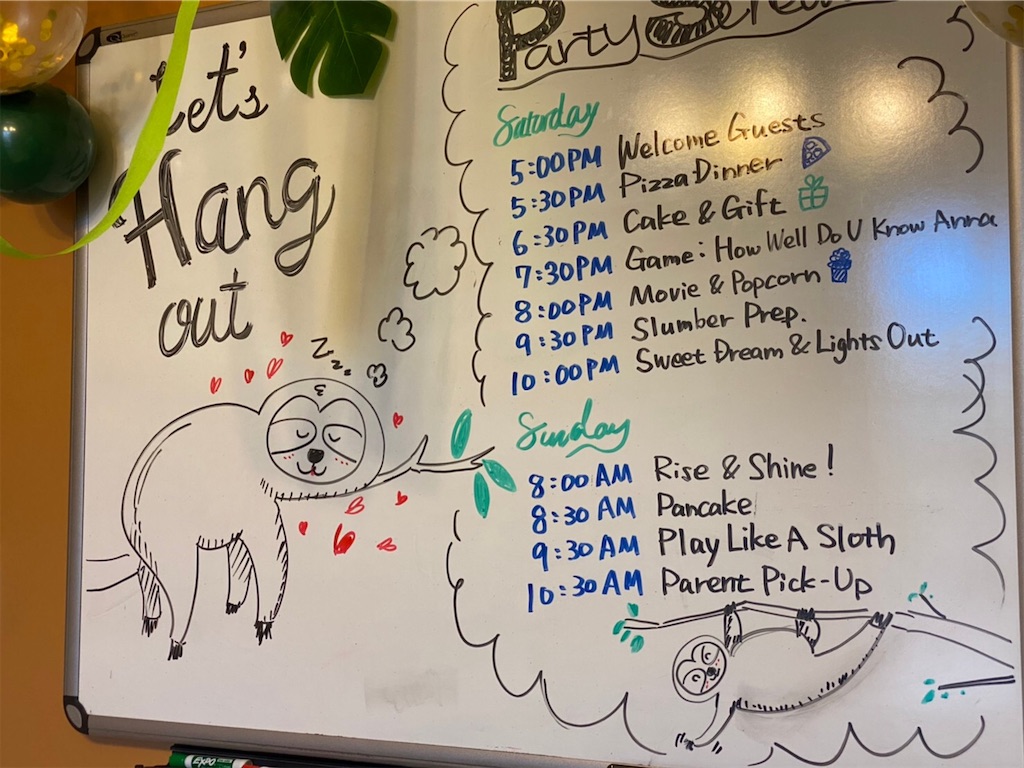 Let's
Hang
out
Party
Saturday
5:00PM Welcome Guests
5:30PM Pizza Dinner
6:30PM Cake & Gift
7:30PM Game: How Well Do U Know Anna
8:00PM Movie & Popcorn
9:30PM Slumber Prep.
10:00PM Sweet Dream & Lights Out
Zzzz
Sunday
8:00AM Rise & Shine!
8:30AM Pancake
9:30AM Play Like A Sloth
10:30AM Parent Pick-Up
EXPO